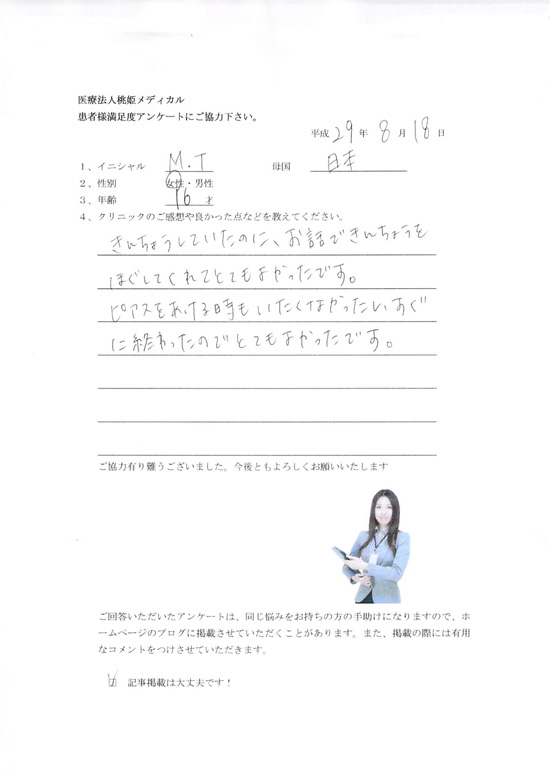 医療法人桃姫メディカル
患者様満足度アンケートにご協力下さい。
平成 29 年 8 月 18 日
1、イニシャル M.T 母国 日本
2、性別 女性・男性
3、年齢 16 才
4、クリニックのご感想や良かった点などを教えてください。
きんちょうしていたのに、お話できんちょうを
ほぐしてくれてとてもよかったです。
ピアスをあける時もいたくなかったし、すぐ
に終わったのでとてもよかったです。
ご協力有り難うございました。今後ともよろしくお願いいたします
ご回答いただいたアンケートは、同じ悩みをお持ちの方の手助けになりますので、ホ
ームページのブログに掲載させていただくことがあります。また、掲載の際には有用
なコメントをつけさせていただきます。
記事掲載は大丈夫です！